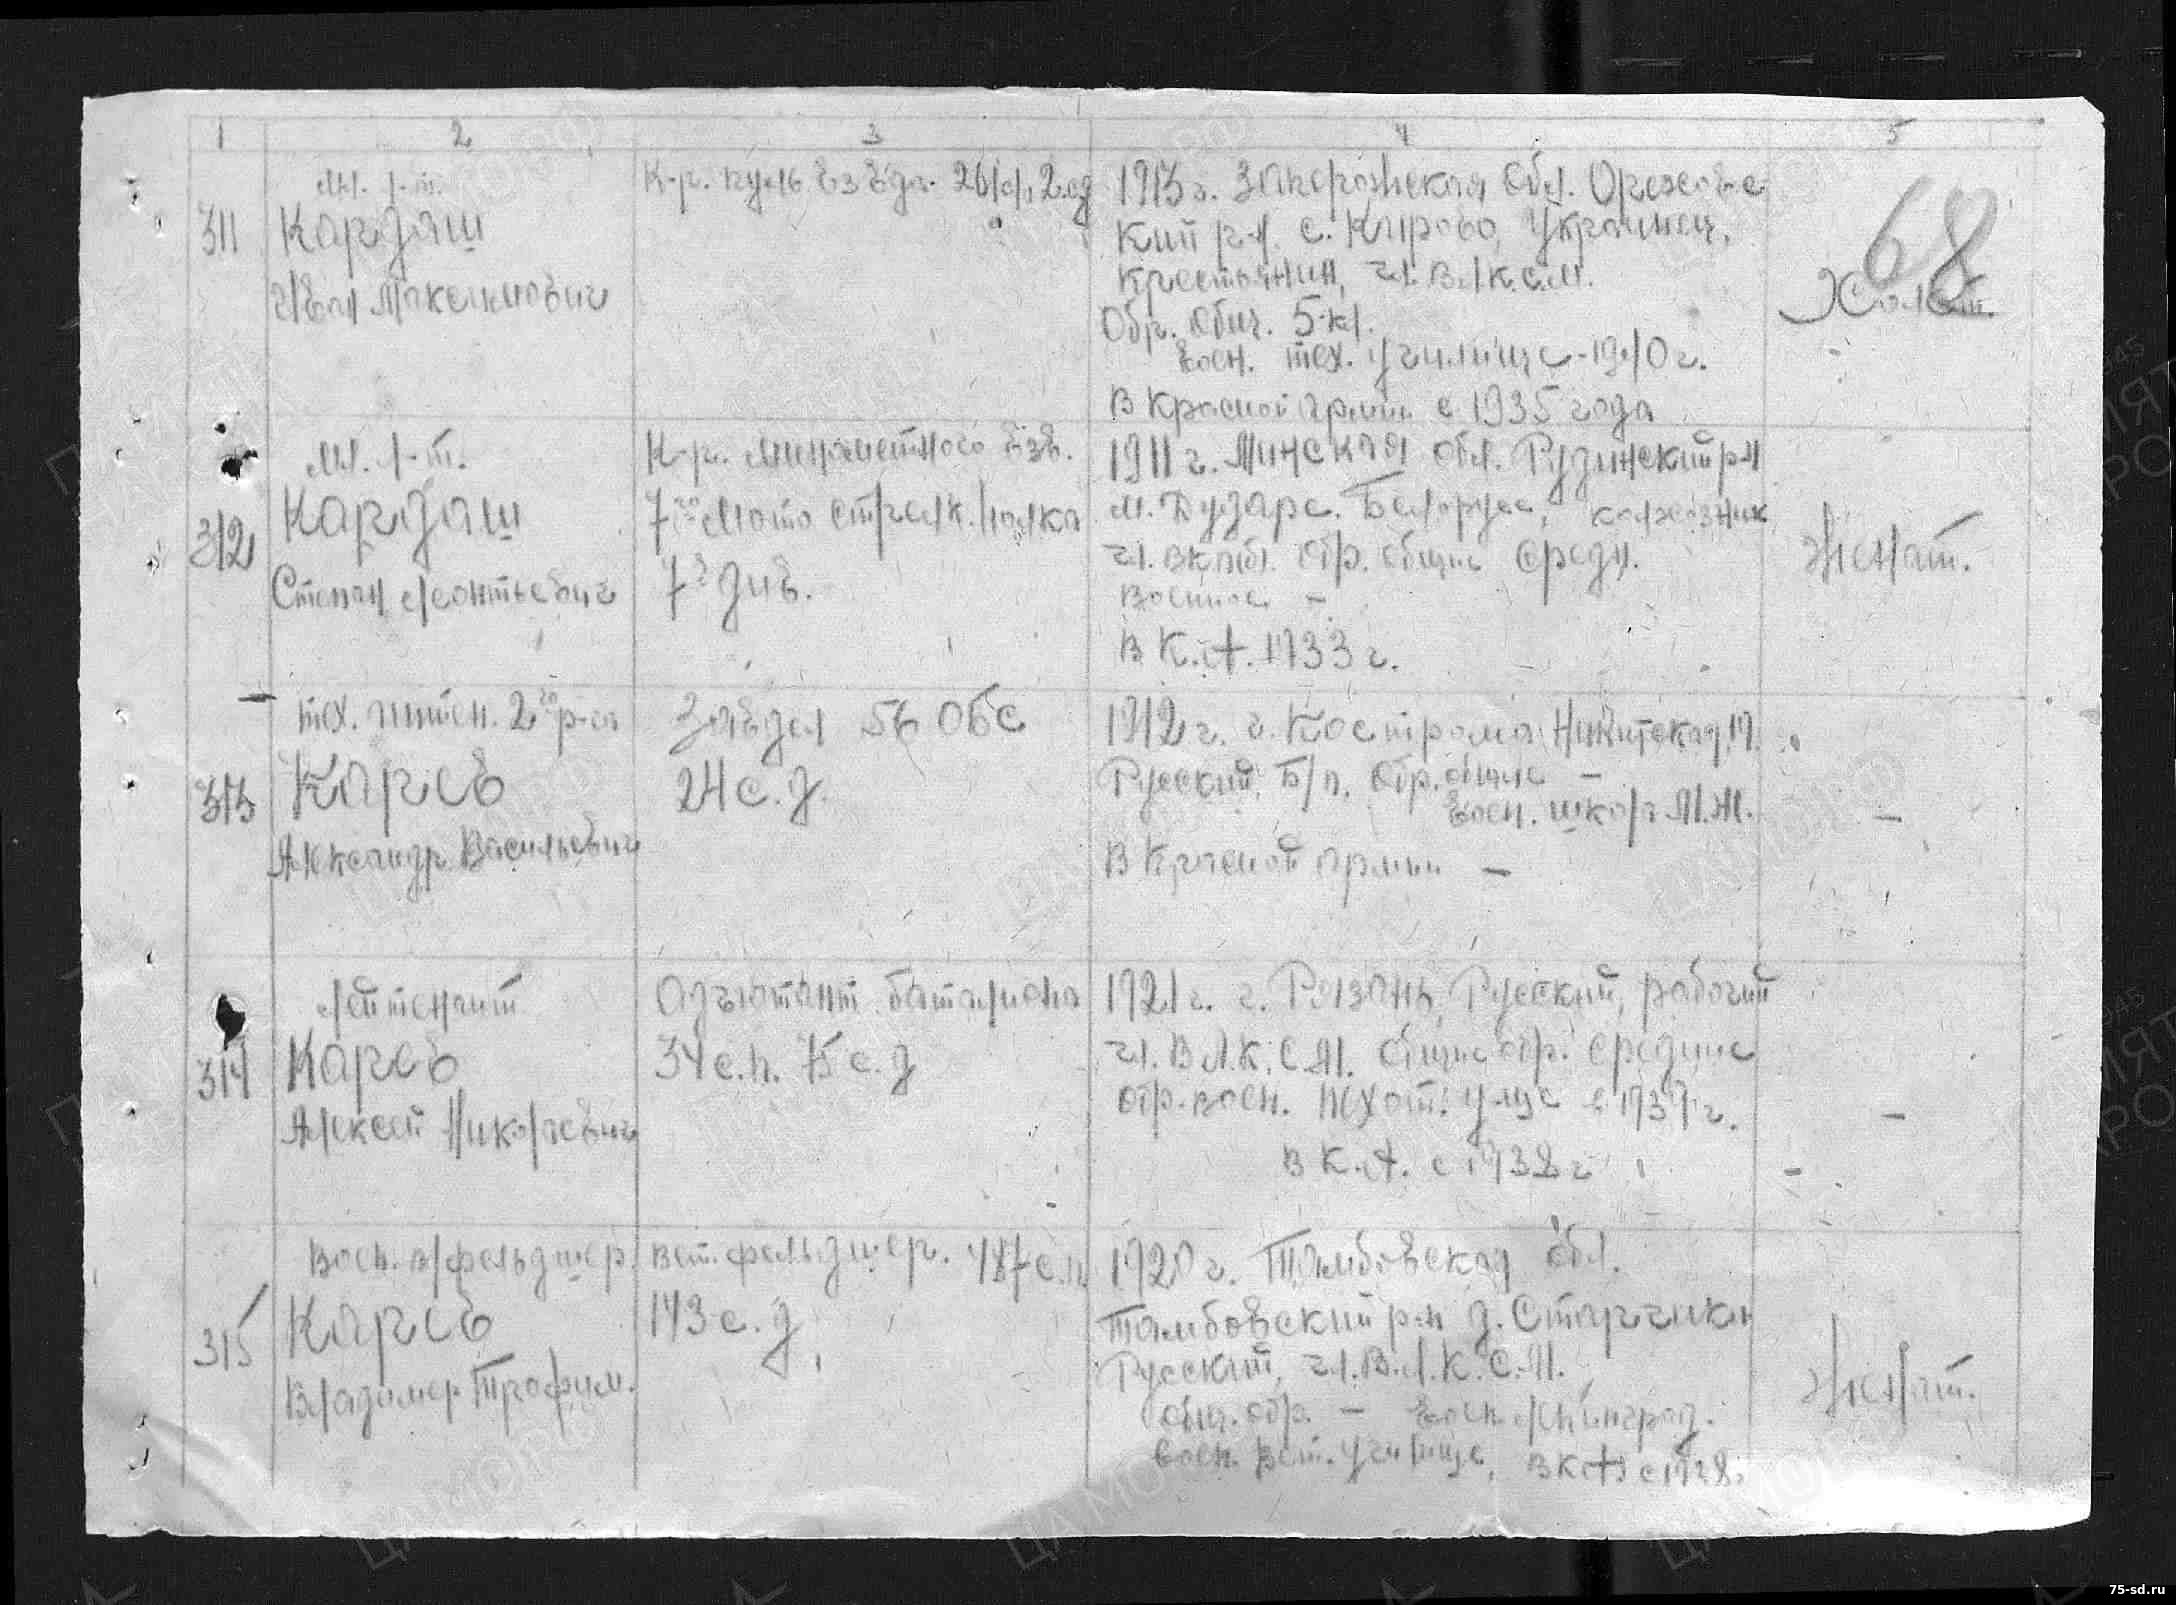 1 2 3 4 5
68
311
мл. л-т.
Кардаш
Иван Максимович
К-р. пуль взвда. 2 сд
1913 г. Запорожская Обл. Ореховс
кий р-н. с. Кирово, Украинец,
Крестьянин, чл. В.Л.К.С.М.
Обр. общ. 5-кл.
воен. тех. училище - 1940 г.
В Красной Армии с 1935 года
Холост.
312
мл. л-т.
Кардаш
Степан Леонтьевич
К-р. минометного взв.
7го мото стрелк. полка
7й див.
1911 г. Минская обл. Руднский р-н
м. Дударс. Белорус, колхозник
чл. ВКПб. обр. общее средн.
Военное —
В К.А. 1933 г.
Женат.
313
тех. интен. 2го р-га
Карев
Александр Васильевич
Завдел 56 ОБС
24 с.д.
1912 г. г. Кострома Никитская, 19.
Русский, Б/п. Обр. общее —
воен. школа М.Ж.
В Красной Армии —
—
314
лейтенант
Карев
Алексей Николаевич
Адъютант батальона
34 с.п. 75 с.д
1921 г. г. Рязань, Русский, рабочий
чл. В.Л.К.С.М. общее обр. среднее
обр. воен. пехот. улще с 1939 г.
В К.А. с 1938 г
—
315
Воен. в/фельдшер
Карев
Владимер Трофим.
Вет. фельдшер. 487 с.п
143 с.д,
1920 г. Тамбовская обл.
Тамбовский р-н д. Старчики
Русский, чл. В.Л.К.С.М.
общ. обр. — воен. Ленинград.
воен. Вет. Училище, В КА с 1938.
Женат.
75-sd.ru